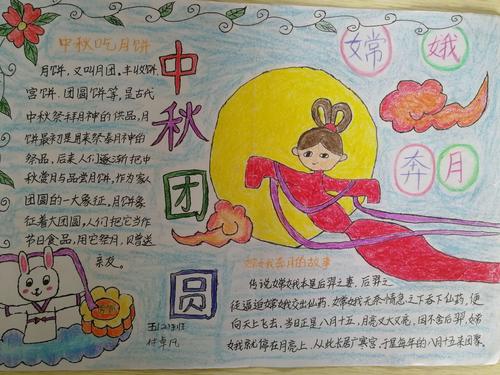 中秋吃月饼
月饼,又叫月团,丰收饼,
宫饼.团圆饼等,是古代
中秋祭拜月神的供品,月
饼最初是用来祭奉月神的
祭品,后来人们逐渐把中
秋赏月与品尝月饼,作为家人
团圆的一大象征,月饼象
征着大团圆,人们把它当作
节日食品,用它祭月,贝赠送
亲友。
中秋团圆
嫦娥
奔月
嫦娥奔月的故事
传说嫦娥本是后羿之妻,后羿之
徒逼迫嫦娥交出仙药,嫦娥无奈情急之下吞下仙药,便
向天上飞去,当日正是八月十五,月亮又大又亮,因不舍后羿,嫦
娥就停在月亮上.从此长居广寒宫,于是每年的八月十五来团聚.
五(2)班
付卓凡